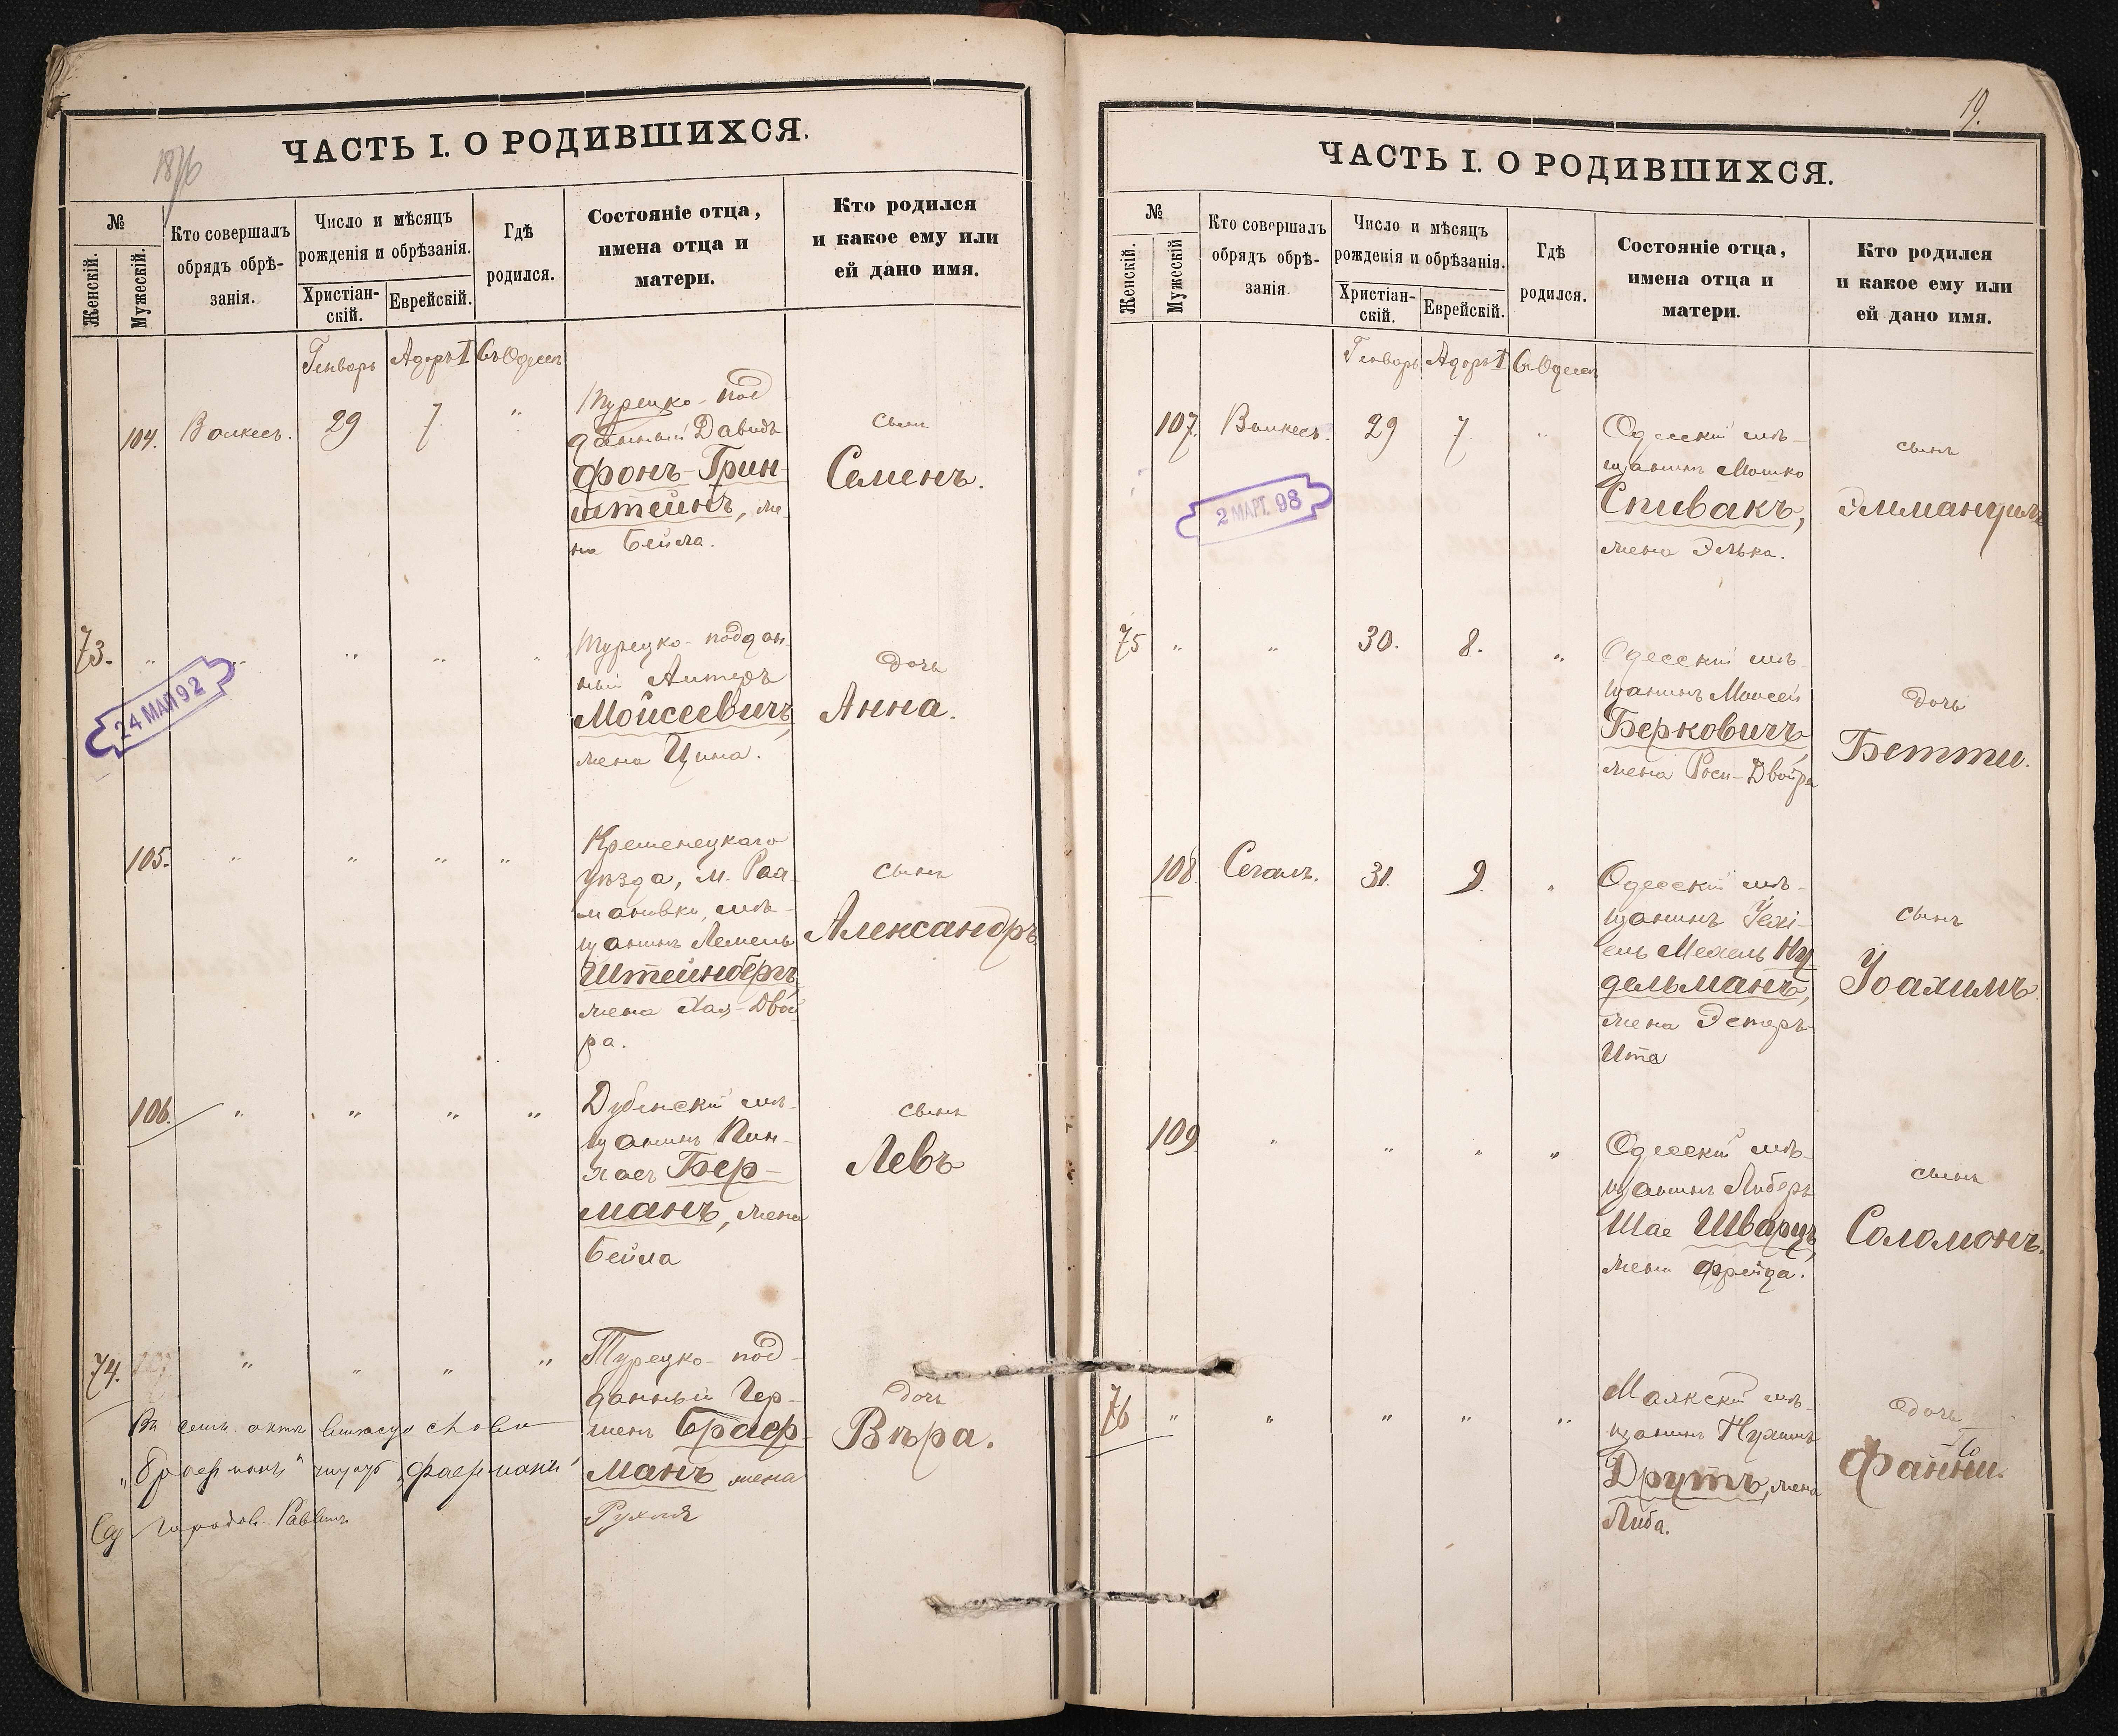 1876
ЧАСТЬ I. О РОДИВШИХСЯ.
№
Женскій.
Мужескій.
Кто совершалъ
обрядъ обрѣ-
занія.
Число и мѣсяцъ
рожденія и обрѣзанія.
Христіан-
скій.
Еврейскій.
Гдѣ
родился.
Состояніе отца,
имена отца и
матери.
Кто родился
и какое ему или
ей дано имя.
Генварь Адоръ I Въ Одессѣ
104. 29 7 "
Турецко-под
данный Давидъ
фонъ-Грин-
штейнъ, же-
на Бейла.
сынъ
Семенъ.
73. " " " " "
24 МАЯ 92
Турецко-поддан-
ный
Моисеевичъ,
жена Цина.
дочь
Анна.
105. " " " "
Кременецкаго
уѣзда, м.
мѣ-
щанинъ Лемель
Штейнбергъ,
жена Хая-Двой
ра.
сынъ
Александръ.
106. " " " "
Дубенскій мѣ-
щанинъ Пин-
хасъ Бер-
манъ, жена
Бейла
сынъ
Левъ
74. " " " "
Турецко-под-
данный Гер-
шенъ Браер-
манъ жена
Рухля
дочь
Вѣра.
Въ семъ актѣ слово
"Браерманъ" "Фаерманъ"
Городов. Раввинъ
19.
ЧАСТЬ I. О РОДИВШИХСЯ.
№
Женскій.
Мужескій
Кто совершалъ
обрядъ обрѣ-
занія.
Число и мѣсяцъ
рожденія и обрѣзанія.
Христіан-
скій.
Еврейскій.
Гдѣ
родился.
Состояніе отца,
имена отца и
матери.
Кто родился
и какое ему или
ей дано имя.
Генварь Адоръ I Въ Одессѣ
107. 29 7 "
2 МАРТ. 98
Одесскій мѣ-
щанинъ Мошко
Спивакъ,
жена Элька.
сынъ
75 " " 30. 8. "
Одесскій мѣ-
щанинъ Моисей
Берковичъ
жена Роси-Двойра
дочь
Бетти.
108. Сегалъ. 31. 9. "
Одесскій мѣ-
щанинъ Іехі-
ель Мехель Ну
дельманъ,
жена Эстеръ-
Ита
сынъ
Іоахимъ.
109 " " " "
Одесскій мѣ-
щанинъ Либеръ
Шае Шварцъ,
жена Фрейда.
сынъ
Соломонъ.
76 " " " " "
Маякскій мѣ-
щанинъ Нухимъ
Друтъ, жена
Либа.
дочь
Фанни.